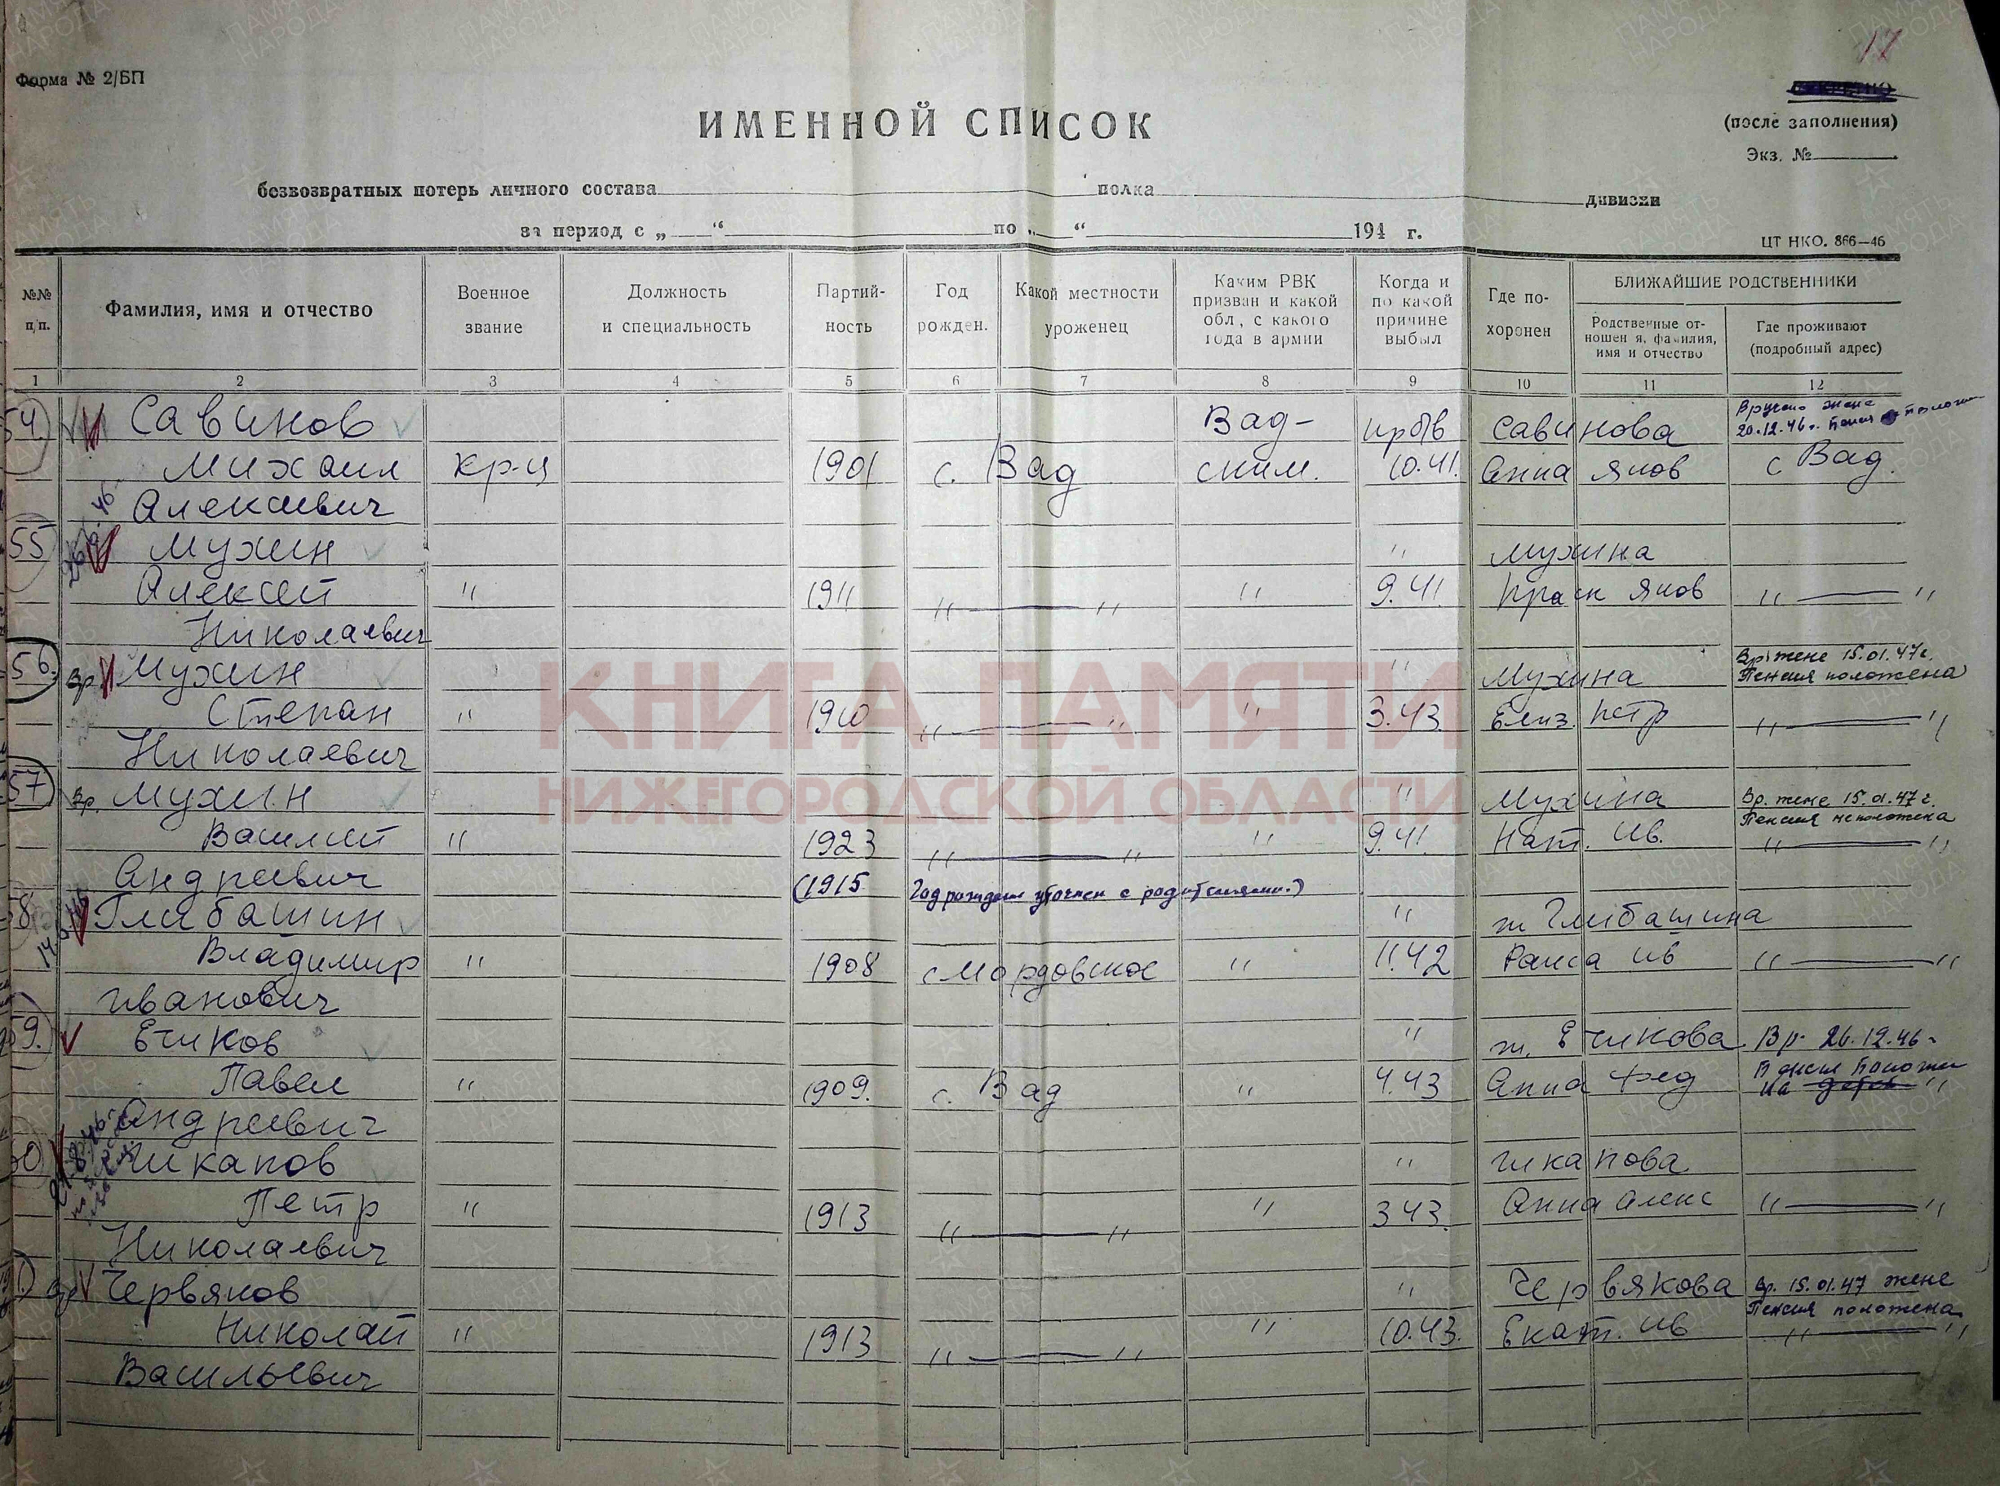 17
Форма № 2/БП
СЕКРЕТНО
(после заполнения)
Экз. №
ИМЕННОЙ СПИСОК
безвозвратных потерь личного состава полка дивизии
за период с „ “ по „ “ 194 г.
ЦТ НКО. 866—46
№№ п/п.
Фамилия, имя и отчество
Военное звание
Должность и специальность
Партийность
Год рожден.
Какой местности уроженец
Каким РВК призван и какой обл., с какого года в армии
Когда и по какой причине выбыл
Где похоронен
БЛИЖАЙШИЕ РОДСТВЕННИКИ
Родственные отношения, фамилия, имя и отчество
Где проживают (подробный адрес)
1 2 3 4 5 6 7 8 9 10 11 12
54. Савинов Вад- пр б/в Савинова Вручено жене
20.12.46 г.
Михаил кр-ц 1901 с. Вад ским. 10.41. Анна Яков с Вад.
Алексеевич
55 Мухин " Мухина
Алексей " 1911 " — " " 9.41. Праск Яков " — "
Николаевич
56. Вр. Мухин " Мухина Вр. жене 15.01.47 г.
Пенсия положена
Степан " 1910 " — " " 3.43 Елиз. Петр " — "
Николаевич
57 Вр. Мухин " Мухина Вр. жене 15.01.47 г.
Пенсия не положена
Василий " 1923 " — " " 9.41. Нат. Ив. " — "
Андреевич (1915 Год рождения уточнен с родителями.)
58 Глебашин " ж Глебашина
Владимир " 1908 с Мордовское " 11.42 Раиса Ив " — "
Иванович
59. Ечиков " ж. Ечикова Вр. 26.12.46 г.
Павел " 1909. с. Вад " 4.43 Анна Фед Пенсия положен
на детей "
Андреевич
Чикапов " Чикапова
Петр " 1913 " — " " 3.43. Анна Алекс " — "
Николаевич
Червяков " Червякова Вр. 15.01.47 жене
Пенсия положена
Николай " 1913 " — " " 10.43. Екат. Ив " — "
Васильевич
КНИГА ПАМЯТИ
НИЖЕГОРОДСКОЙ ОБЛАСТИ
ПАМЯТЬ НАРОДА